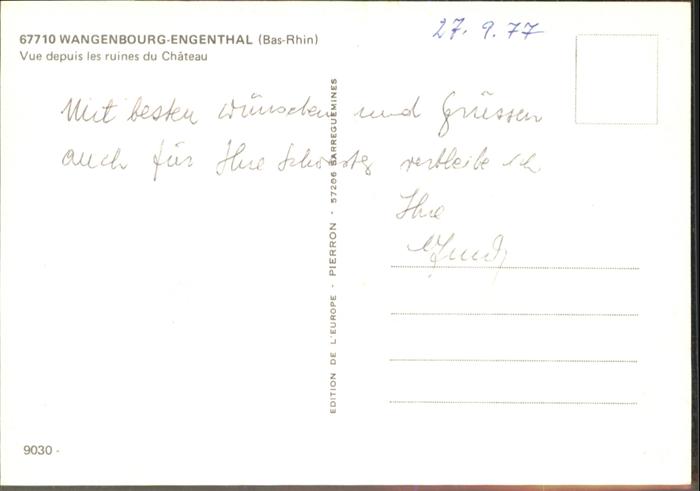 67710 WANGENBOURG-ENGENTHAL (Bas-Rhin)
Vue depuis les ruines du Château
27. 9. 77
Mit besten Wünschen und Grüssen
auch für Ihre Schwester verbleibe ich
Ihre
EDITION DE L'EUROPE - PIERRON - 57206 SARREGUEMINES
9030 -